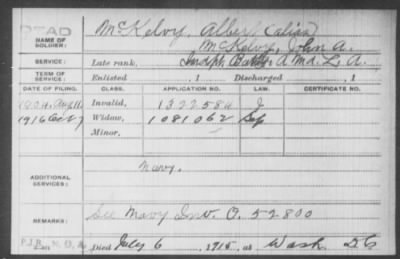 DEAD
NAME OF SOLDIER: McKelvy, Albert (alias)
McKelvy, John A.
SERVICE: Late rank, Indpt. Batty. A Md. L. A.
TERM OF SERVICE: Enlisted , 1 Discharged , 1
DATE OF FILING. CLASS. APPLICATION NO. LAW. CERTIFICATE NO.
1904, Aug 11 Invalid, 1322584 J
1916 Oct 7 Widow, 1081062 Sep
Minor,
ADDITIONAL SERVICES: Navy.
REMARKS: See Navy Inv. O. 52800
Died July 6, 1915, at Wash. D.C.